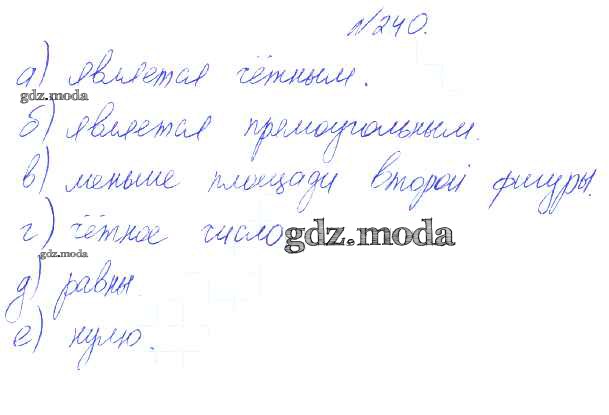 №240.
а) является чётным.
gdz.moda
б) является прямоугольным.
в) меньше площади второй фигуры.
г) чётное число gdz.moda
gdz.moda
д) равны.
е) нулю.